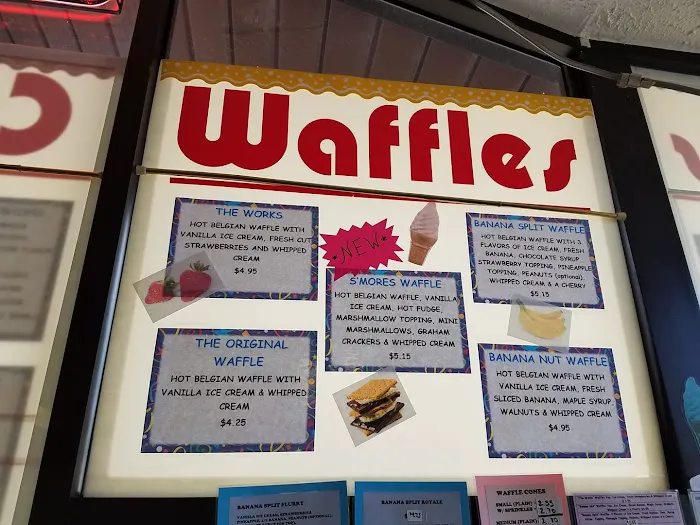 Waffles
THE WORKS
HOT BELGIAN WAFFLE WITH
VANILLA ICE CREAM, FRESH CUT
STRAWBERRIES AND WHIPPED
CREAM
$4.95
NEW
S'MORES WAFFLE
HOT BELGIAN WAFFLE, VANILLA
ICE CREAM, HOT FUDGE,
MARSHMALLOW TOPPING, MINI
MARSHMALLOWS, GRAHAM
CRACKERS & WHIPPED CREAM
$5.15
BANANA SPLIT WAFFLE
HOT BELGIAN WAFFLE WITH 3
FLAVORS OF ICE CREAM, FRESH
BANANA, CHOCOLATE SYRUP
STRAWBERRY TOPPING, PINEAPPLE
TOPPING, PEANUTS (optional),
WHIPPED CREAM & A CHERRY
$5.15
THE ORIGINAL
WAFFLE
HOT BELGIAN WAFFLE WITH
VANILLA ICE CREAM & WHIPPED
CREAM
$4.25
BANANA NUT WAFFLE
HOT BELGIAN WAFFLE WITH
VANILLA ICE CREAM, FRESH
SLICED BANANA, MAPLE SYRUP,
WALNUTS & WHIPPED CREAM
$4.95
BANANA SPLIT FLURRY
VANILLA ICE CREAM, STRAWBERRIES,
PINEAPPLE, 1/2 BANANA, PEANUTS (OPTIONAL)
BANANA SPLIT ROYALE
WAFFLE CONES
SMALL (PLAIN) 2.55
W/ SPRINKLES 2.70
MEDIUM (PLAIN)